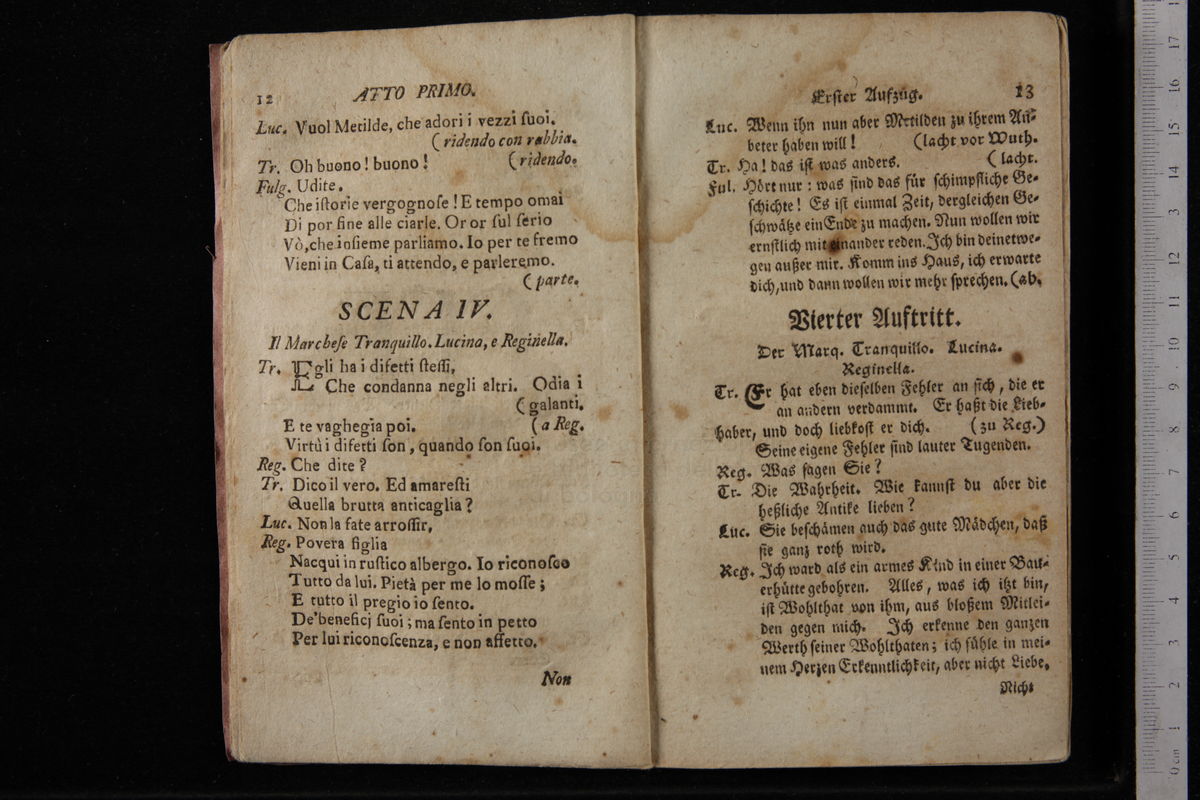 12 ATTO PRIMO.
Luc. Vuol Metilde, che adori i vezzi ſuoi.
(ridendo con rabbia.
Tr. Oh buono! buono! (ridendo.
Fulg. Udite.
Che iſtorie vergognoſe! E tempo omai
Di por fine alle ciarle. Or or ſul ſerio
Vò, che inſieme parliamo. Io per te fremo
Vieni in Caſa, ti attendo, e parleremo.
(parte.
SCENA IV.
Il Marcheſe Tranquillo. Lucina, e Reginella.
Tr. Egli ha i difetti ſteſſi,
Che condanna negli altri. Odia i
(galanti.
E te vagheggia poi. (a Reg.
Virtù i difetti ſon, quando ſon ſuoi.
Reg. Che dite?
Tr. Dico il vero. Ed amareſti
Quella brutta anticaglia?
Luc. Non la fate arroſſir,
Reg. Povera figlia
Nacqui in ruſtico albergo. Io riconoſco
Tutto da lui. Pietà per me lo moſſe;
E tutto il pregio io ſento.
De' beneficj ſuoi; ma ſento in petto
Per lui riconoſcenza, e non affetto.
Non
Erſter Aufzug. 13
Luc. Wenn ihn nun aber Metilden zu ihrem An-
beter haben will! (lacht vor Wuth.
Tr. Ha! das iſt was anders. (lacht.
Ful. Hört nur: was ſind das für ſchimpfliche Ge-
ſchichte! Es iſt einmal Zeit, dergleichen Ge-
ſchwätze ein Ende zu machen. Nun wollen wir
ernſtlich mit einander reden. Ich bin deinetwe-
gen außer mir. Komm ins Haus, ich erwarte
dich, und dann wollen wir mehr ſprechen. (ab.
Vierter Auftritt.
Der Marq. Tranquillo. Lucina.
Reginella.
Tr. Er hat eben dieſelben Fehler an ſich, die er
an andern verdammt. Er haßt die Lieb-
haber, und doch liebkoſt er dich. (zu Reg.)
Seine eigene Fehler ſind lauter Tugenden.
Reg. Was ſagen Sie?
Tr. Die Wahrheit. Wie kannſt du aber die
heßliche Antike lieben?
Luc. Sie beſchämen auch das gute Mädchen, daß
ſie ganz roth wird.
Reg. Ich ward als ein armes Kind in einer Bau-
erhütte gebohren. Alles, was ich itzt bin,
iſt Wohlthat von ihm, aus bloßem Mitlei-
den gegen mich. Ich erkenne den ganzen
Werth ſeiner Wohlthaten; ich fühle in mei-
nem Herzen Erkenntlichkeit, aber nicht Liebe.
Nicht